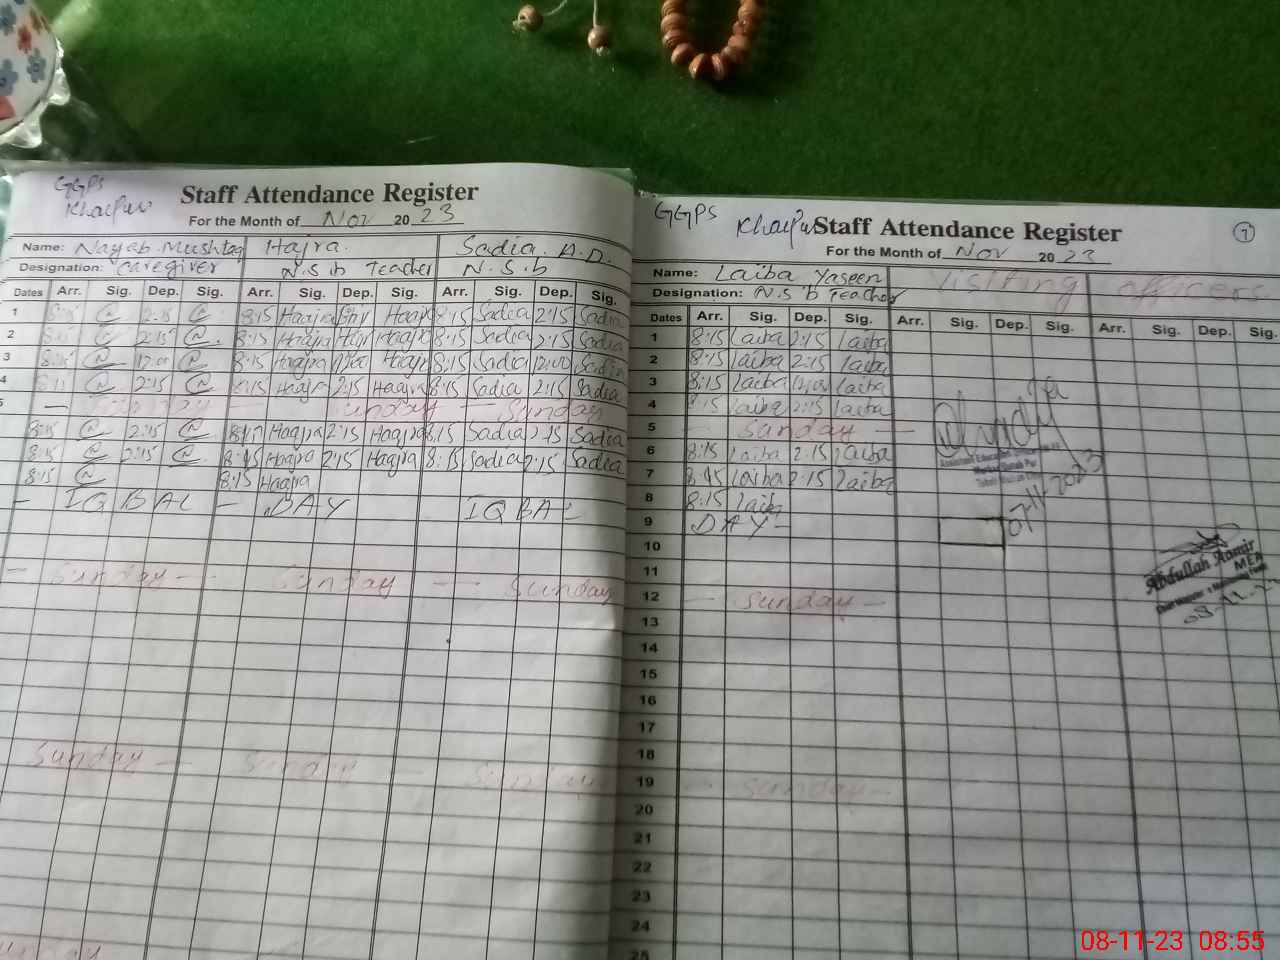 GGPS
Khaipur
Staff Attendance Register
For the Month of Nov 2023
Name: Nayab Mushtaq Hajra. Sadia A.D.
Designation: Caregiver N.S.b Teacher N.S.b
Dates Arr. Sig. Dep. Sig. Arr. Sig. Dep. Sig. Arr. Sig. Dep. Sig.
1 2:15 8:15 8:15 Sadia 2:15 Sadia
2 2:15 8:15 8:15 Sadia 2:15 Sadia
3 12:00 8:15 8:15 Sadia 12:00 Sadia
4 2:15 8:15 2:15 8:15 Sadia 2:15 Sadia
5 — Sunday — Sunday — Sunday
8:15 2:15 Haajra 2:15 Haajra 8:15 Sadia 2:15 Sadia
8:15 2:15 8:45 Haajra 2:15 Haajra 8:15 Sadia 2:15 Sadia
8:15 8:15 Haajra
— IQBAL — DAY IQBAL
— Sunday — Sunday — Sunday
Sunday — Sunday — Sunday
Sunday
GGPS Khaipur Staff Attendance Register 7
For the Month of Nov 2023
Name: Laiba Yaseen Visiting officers
Designation: N.S.b Teacher
Dates Arr. Sig. Dep. Sig. Arr. Sig. Dep. Sig. Arr. Sig. Dep. Sig.
1 8:15 Laiba 2:15 Laiba
2 8:15 Laiba 2:15 Laiba
3 8:15 Laiba 12:00 Laiba
4 8:15 Laiba 2:15 Laiba
5 — Sunday —
6 8:15 Laiba 2:15 Laiba
7 8:45 Laiba 2:15 Laiba
8 8:15 Laiba
9 DAY —
07-11-2023
10
11
Abdullah Aamir
MEA
12 — Sunday —
13
14
15
16
17
18
19 — Sunday —
20
21
22
23
24
25
08-11-23 08:55